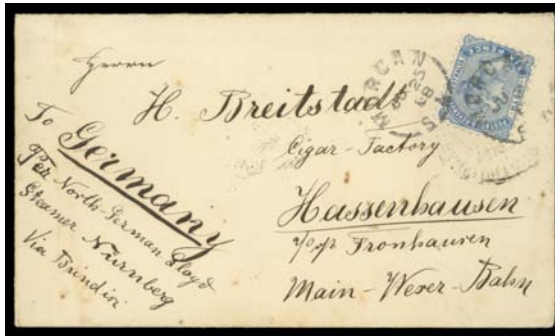 Herrn
H. Breitstadt
Cigar-Factory
Hassenhausen
Fronhausen
Main-Weser-Bahn
To Germany
Per North-German Lloyd
Steamer Nürnberg
Via Brindisi
MORGAN
25
S A